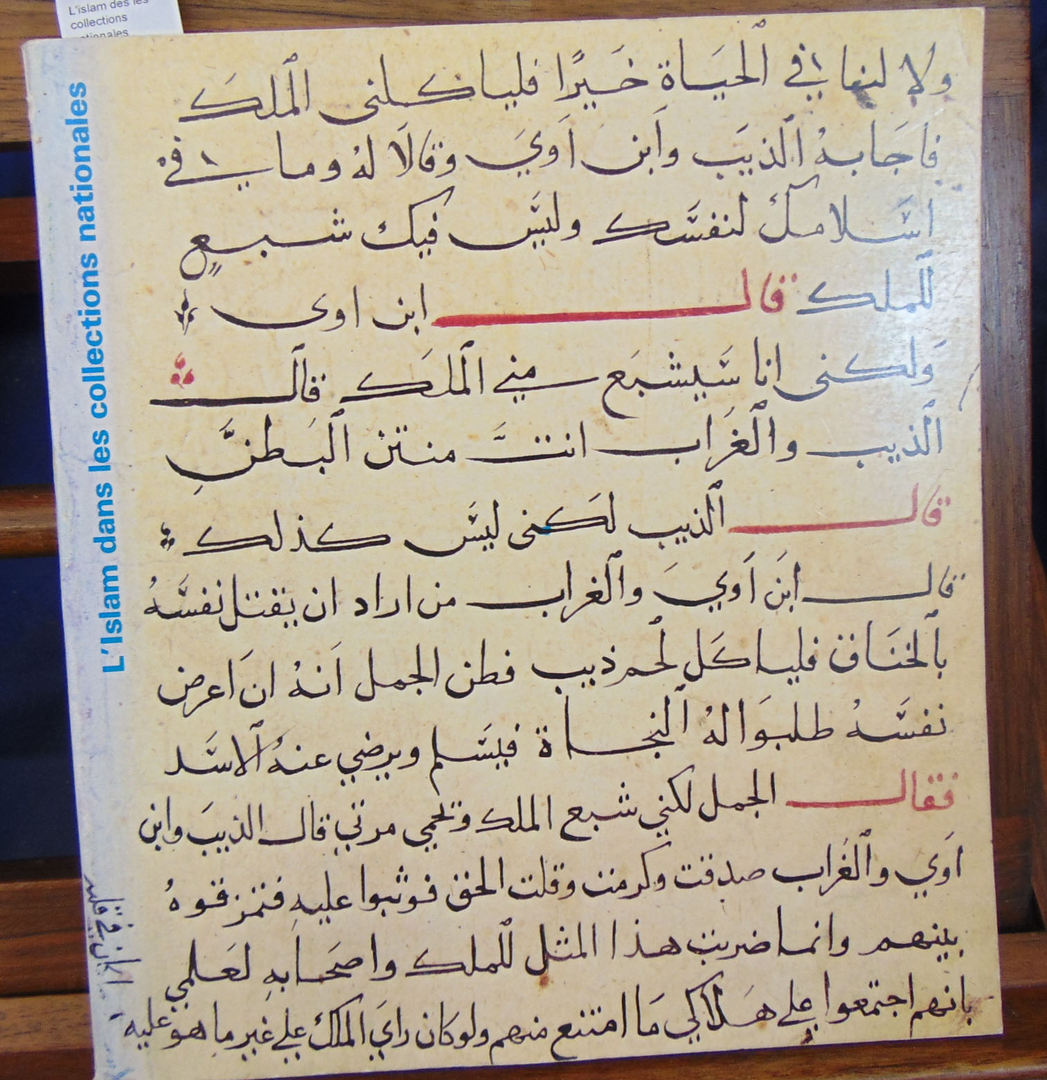 L'islam des les
collections
nationales
L'Islam dans les collections nationales
ولا لنفا في الحياة خيرًا فلياكلنى الملك
فاجابهُ الذيب وابن اوي وقالا لهُ وما في
اسلامك لنفسك وليس فيك شبعٍ
للملك قال ابن اوى
ولكنى انا سيشبع مني الملك قال
الذيب والغراب انت منتن البطن
قال الذيب لكنى ليس كذلك
قال ابن اوي والغراب من اراد ان يقتل نفسهُ
بالخناق فلياكل لحم ذيب فظن الجمل انهُ ان اعرض
نفسهُ طلبوا لهُ النجاة فيسلم ويرضي عنهُ الاسد
فقال الجمل لكني شبع الملك ولحمي مرتي قال الذيب وابن
اوي والغراب صدقت وكرمت وقلت الحق فوثبوا عليهِ فتمزقوهُ
بينهم وانما ضربت هذا المثل للملك واصحابهِ لعلمي
بانهم اجتمعوا علي هلاكي ما امتنع منهم ولو كان راي الملك علي غير ما هو عليه